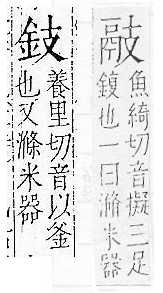 䰙
魚綺切音擬三足
鍑也一曰滫米器
鈘
養里切音以釜
也又滌米器